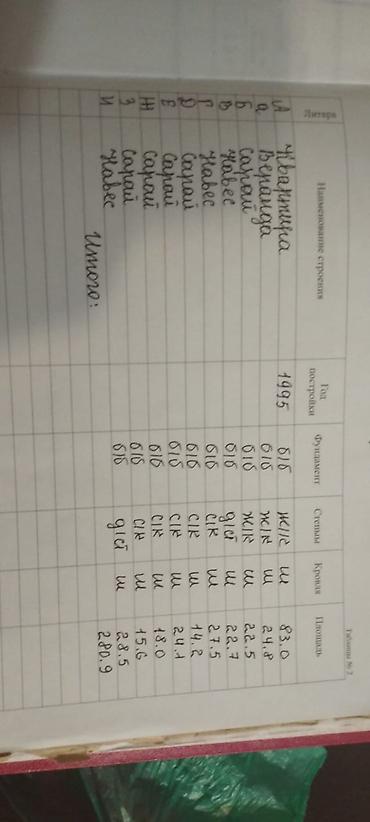 Таблица № 2
Литера Наименование строения Год постройки Фундамент Стены Кровля Площадь
А Квартира 1995 б/б ж/к ш 83.0
а Веранда б/б ж/к ш 24.8
Б Сарай б/б ж/к ш 22.5
В Навес б/б д/ст ш 22.7
Г Навес б/б с/к ш 27.5
Д Сарай б/б с/к ш 14.2
Е Сарай б/б с/к ш 24.1
Ж Сарай б/б с/к ш 18.0
З Сарай б/б с/к ш 15.6
И Навес б/б д/ст ш 28.5
Итого: 280.9